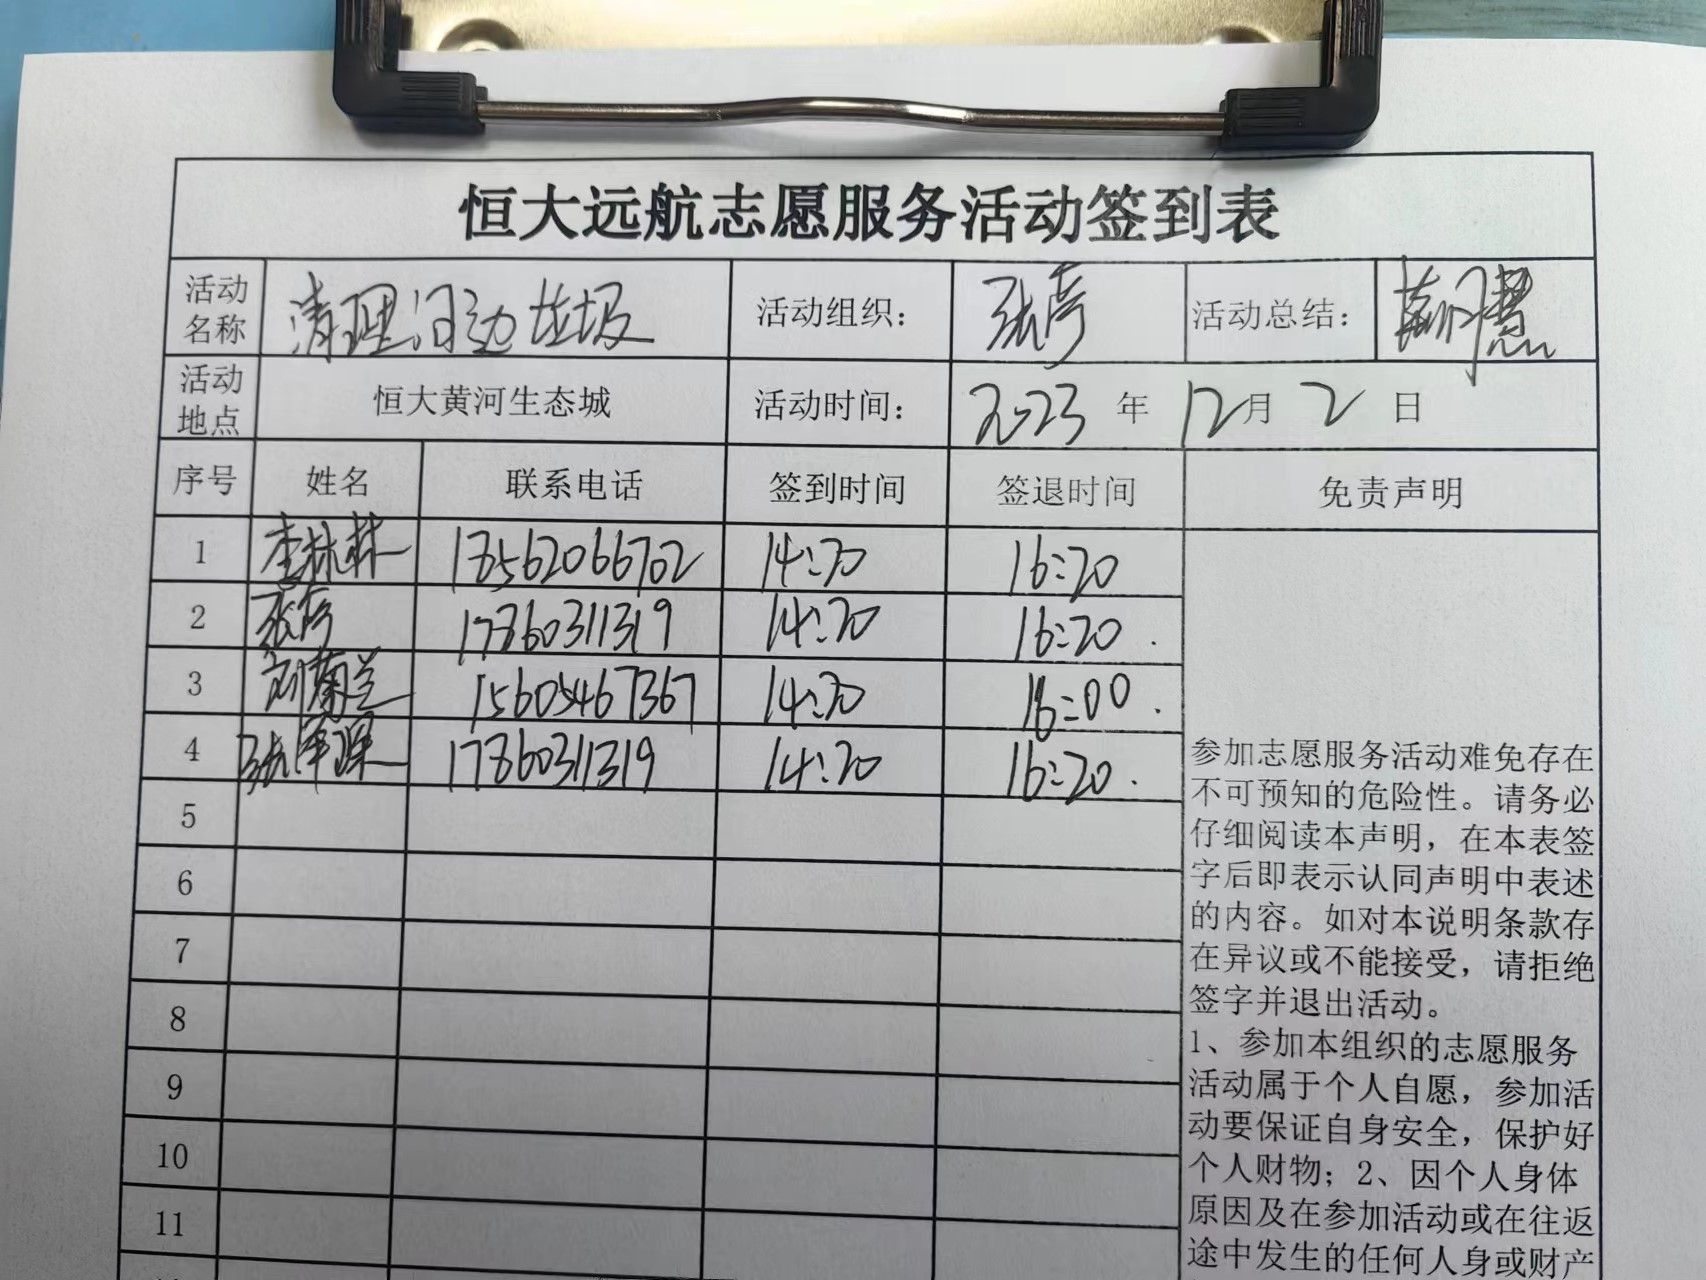 恒大远航志愿服务活动签到表
活动名称 清理河边垃圾 活动组织： 张彦 活动总结：
活动地点 恒大黄河生态城 活动时间： 2023 年 12 月 2 日
序号 姓名 联系电话 签到时间 签退时间 免责声明
1 李林林 18562066702 14:20 16:20
2 张彦 17860311319 14:20 16:20.
3 刘菊兰 15605467367 14:20 16:00.
4 17860311319 14:20 16:20.
5
6
7
8
9
10
11
参加志愿服务活动难免存在
不可预知的危险性。请务必
仔细阅读本声明，在本表签
字后即表示认同声明中表述
的内容。如对本说明条款存
在异议或不能接受，请拒绝
签字并退出活动。
1、参加本组织的志愿服务
活动属于个人自愿，参加活
动要保证自身安全，保护好
个人财物；2、因个人身体
原因及在参加活动或在往返
途中发生的任何人身或财产